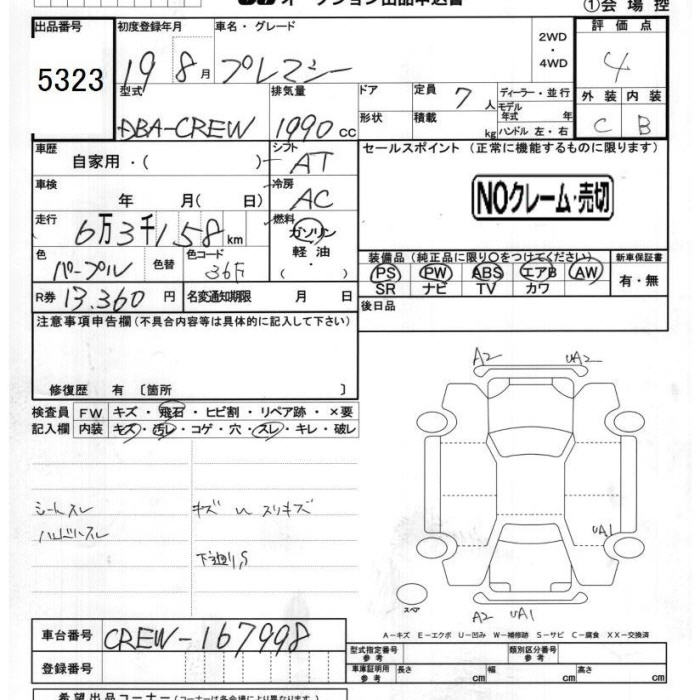 オークション出品申込書
①会場控
出品番号 初度登録年月 車名・グレード 2WD・4WD 評価点
5323 19 8月 プレマシー 4
型式 排気量 ドア 定員 7人 ディーラー・並行 外装 内装
DBA-CREW 1990cc 形状 積載 kg モデル年式 年 ハンドル 左・右 C B
車歴 自家用・( ) シフト AT セールスポイント (正常に機能するものに限ります)
車検 年 月( 日) 冷房 AC NOクレーム・売切
走行 6万3千158km 燃料 ガソリン・軽油・( )
装備品 (純正品に限り○をつけてください) 新車保証書
色 パープル 色替 色コード 36F PS PW ABS エアB AW 有・無
SR ナビ TV カワ
R券 13.360円 名変通知期限 月 日 後日品
注意事項申告欄(不具合内容等は具体的に記入して下さい)
修復歴 有 〔箇所 〕
検査員 FW キズ・飛石・ヒビ割・リペア跡・×要
記入欄 内装 キズ・汚レ・コゲ・穴・スレ・キレ・破レ
A2 UA2
シートスレ キズ U スリキズ
ハンドルスレ
下廻りS
UA1
スペア
A2 UA1
A－キズ E－エクボ U－凹み W－補修跡 S－サビ C－腐食 XX－交換済
車台番号 CREW-167998
型式指定番号 参考 類別区分番号 参考
登録番号 車庫証明用 参考 長さ cm 幅 cm 高さ cm
希望出品コーナー(コーナーは各会場により異なります。)